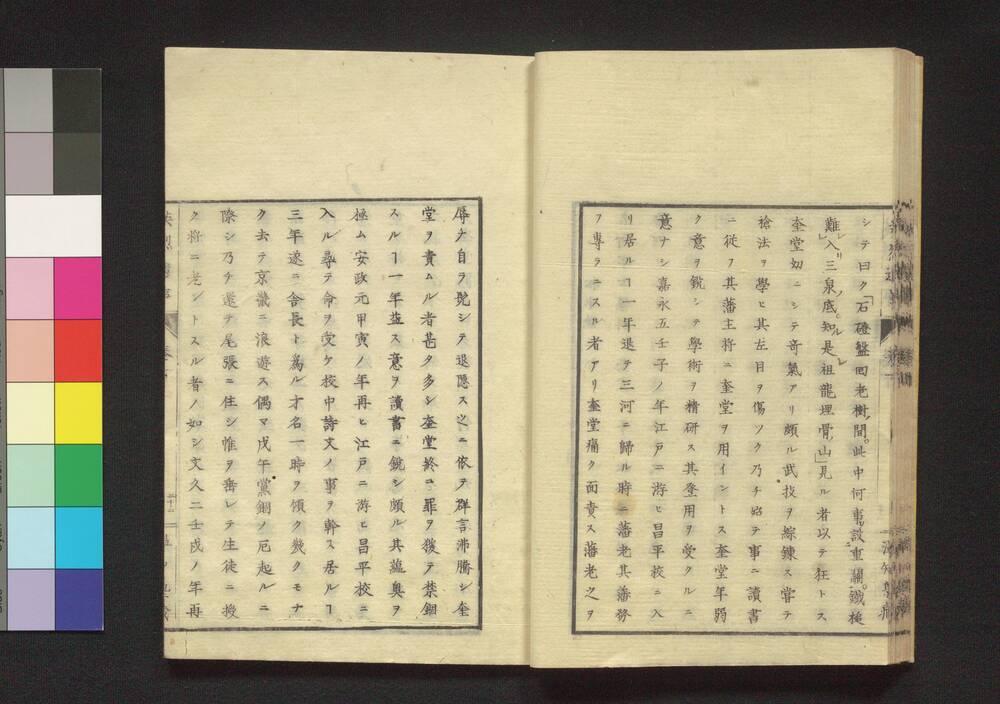 シテ曰ク「石磴盤回老樹間。此中何事設重關。鐵槌
難入三泉底。知是祖龍埋骨山」見ル者以テ狂トス
奎堂幼ニシテ奇氣アリ頗ル武技ヲ綜錬ス嘗テ
槍法ヲ學ヒ其左目ヲ傷ツク乃チ始テ事ニ讀書
ニ從フ其藩主將ニ奎堂ヲ用イントス奎堂年弱
ク意ヲ鋭シテ學術ヲ精研ス其登用ヲ受クルニ
意ナシ嘉永五壬子ノ年江戸ニ游ヒ昌平校ニ入
リ居ルヿ一年退テ三河ニ歸ル時ニ藩老其藩務
ヲ專ラニスル者アリ奎堂痛ク面責ス藩老之ヲ
辱ナ自ラ髡シテ退隱ス之ニ依テ群言沸騰シ奎
堂ヲ責ムル者甚タ多シ奎堂終ニ罪ヲ獲テ禁錮
スルヿ一年益ス意ヲ讀書ニ鋭シ頗ル其蘊奥ヲ
極ム安政元甲寅ノ年再ヒ江戸ニ游ヒ昌平校ニ
入ル尋テ命ヲ受ケ校中詩文ノ事ヲ幹ス居ルヿ
三年遂ニ舎長ト爲ル才名一時ヲ傾ク幾クモナ
ク去テ京畿ニ浪遊ス偶マ戊午黨錮ノ厄起ルニ
際シ乃チ還テ尾張ニ住シ惟ヲ垂レテ生徒ニ授
ク將ニ老ントスル者ノ如シ文久二壬戌ノ年再